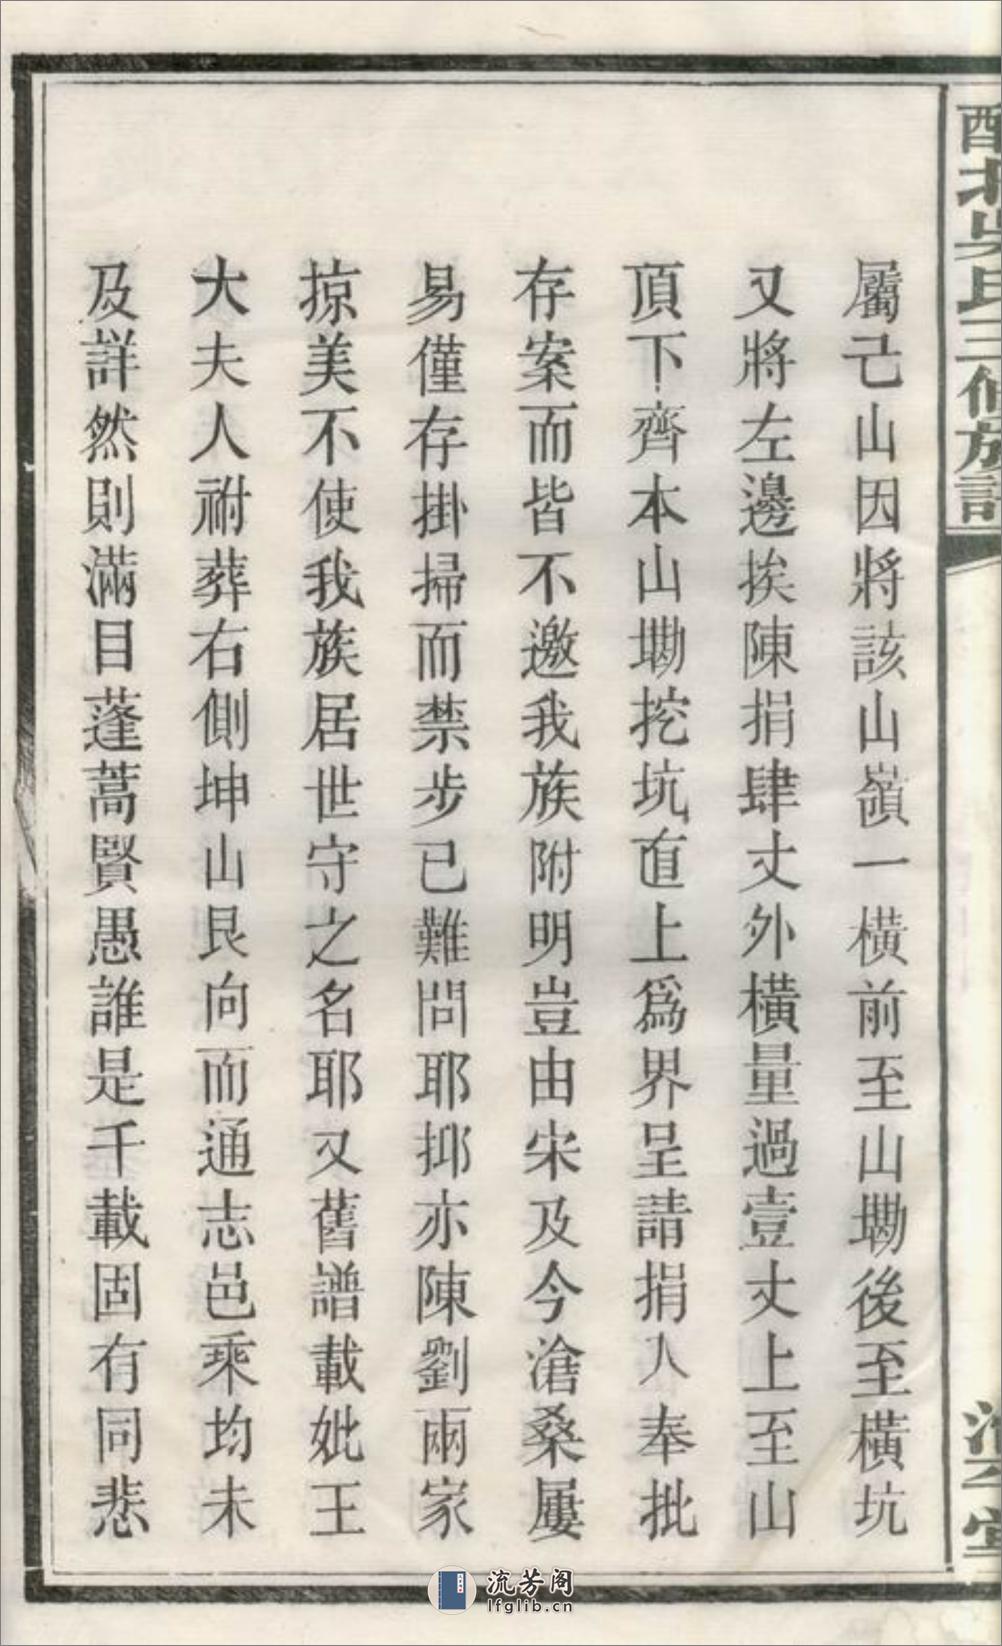 屬己山因將該山嶺一橫前至山墈後至橫坑
又將左邊挨陳捐肆丈外橫量過壹丈上至山
頂下齊本山墈挖坑直上爲界呈請捐入奉批
存案而皆不邀我族附明豈由宋及今滄桑屢
易僅存掛掃而禁步已難問耶抑亦陳劉兩家
掠美不使我族居世守之名耶又舊譜載妣王
大夫人祔葬右側坤山艮向而通志邑乘均未
及詳然則滿目蓬蒿賢愚誰是千載固有同悲
北吳氏三修族譜
流芳阁
lfglib.cn